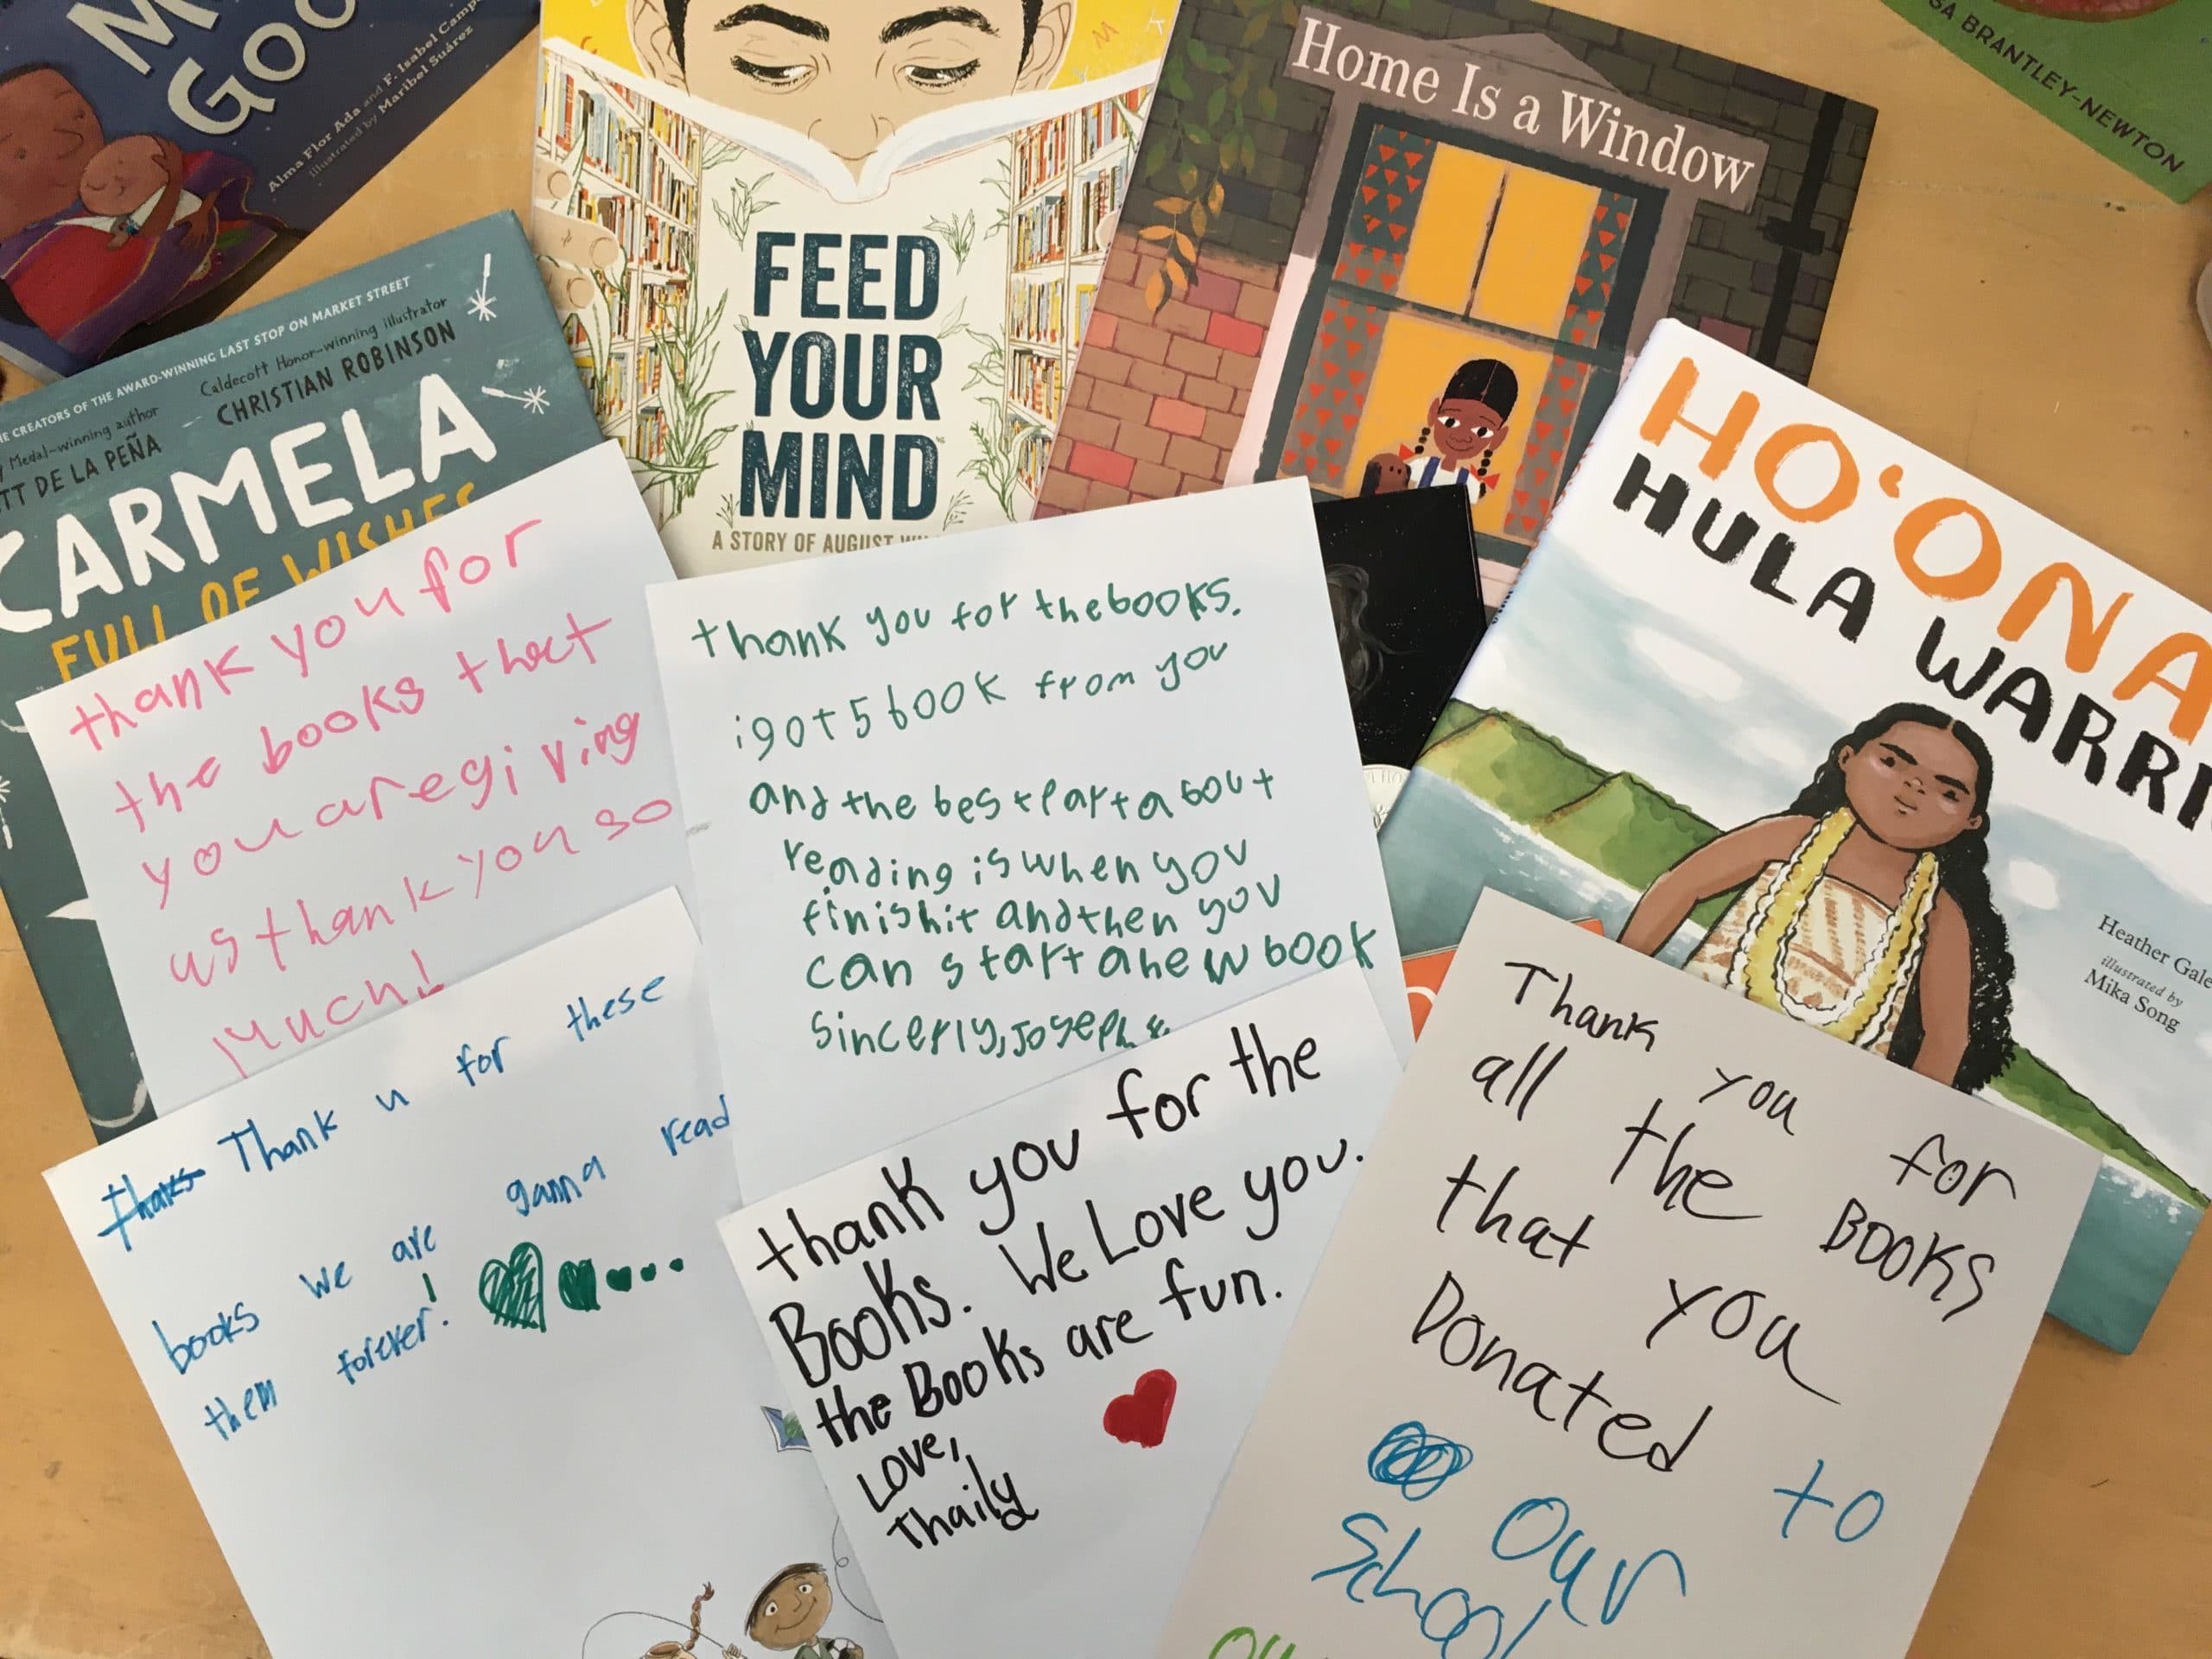 GOO
Alma Flor Ada and F. Isabel Camp
Illustrated by Maribel Suárez
FEED
YOUR
MIND
A STORY OF AUGUST
Home Is a Window
SA BRANTLEY-NEWTON
CREATORS OF THE AWARD-WINNING LAST STOP ON MARKET STREET
Medal-winning author
TT DE LA PEÑA
Caldecott Honor-winning illustrator
CHRISTIAN ROBINSON
CARMELA
FULL OF WISHES
HO'ONA
HULA WARRI
Heather Gale
illustrated by
Mika Song
thank you for
the books that
you aregiving
us thank you so
Much!
thank you for thebooks.
i got 5 book from you
and the best part about
reading is when you
finishit and then you
can start a new book
Sincerly, Joseph
Thank u for these
books we are ganna read
them forever!
thank you for the
Books. We Love you.
the Books are fun.
Love,
Thaily
Thank you for
all the BOOKS
that you
Donated to
Our
School